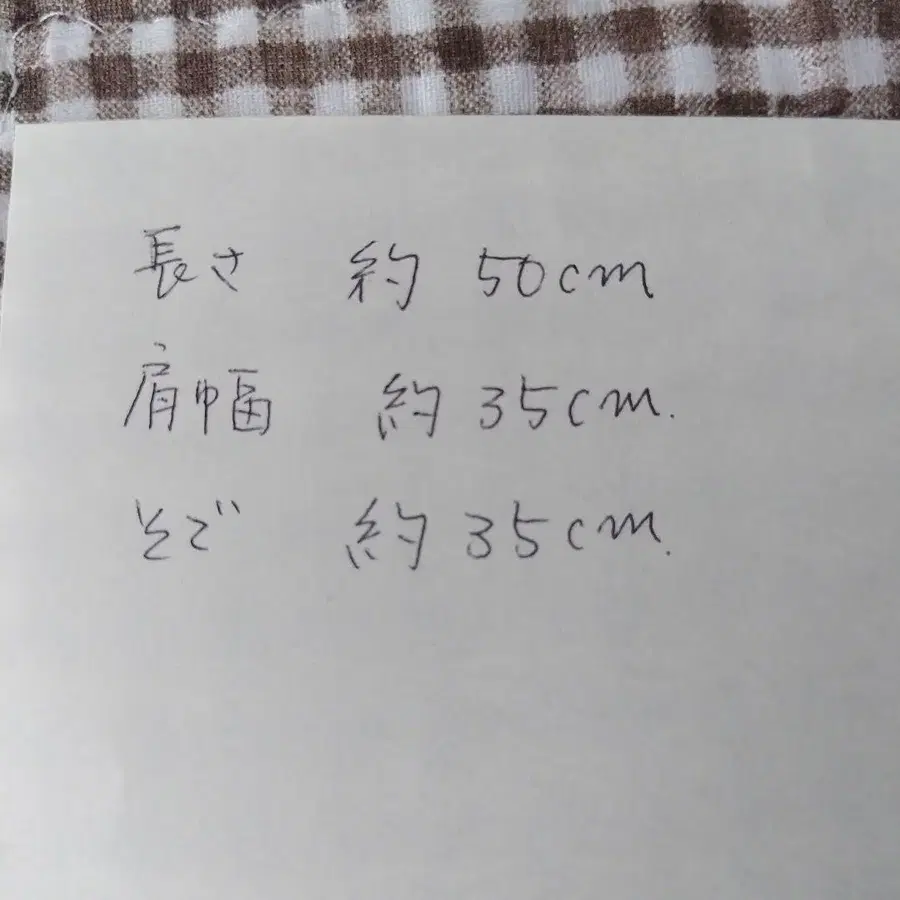 長さ 約 50cm
肩幅 約 35cm.
そで 約 35cm.